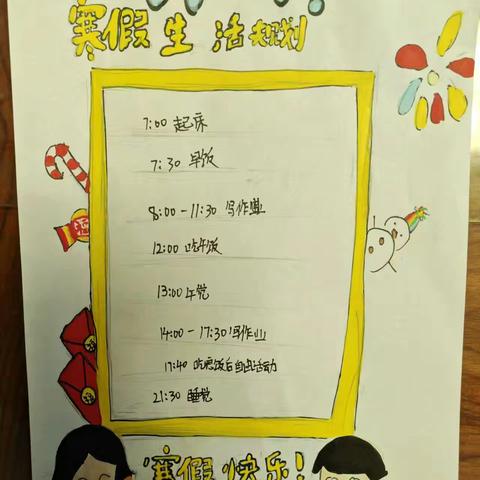 寒假生活规划
7:00 起床
7:30 早饭
8:00-11:30 写作业
12:00 吃午饭
13:00 午觉
14:00-17:30 写作业
17:40 吃完饭后自由活动
21:30 睡觉
寒假快乐!